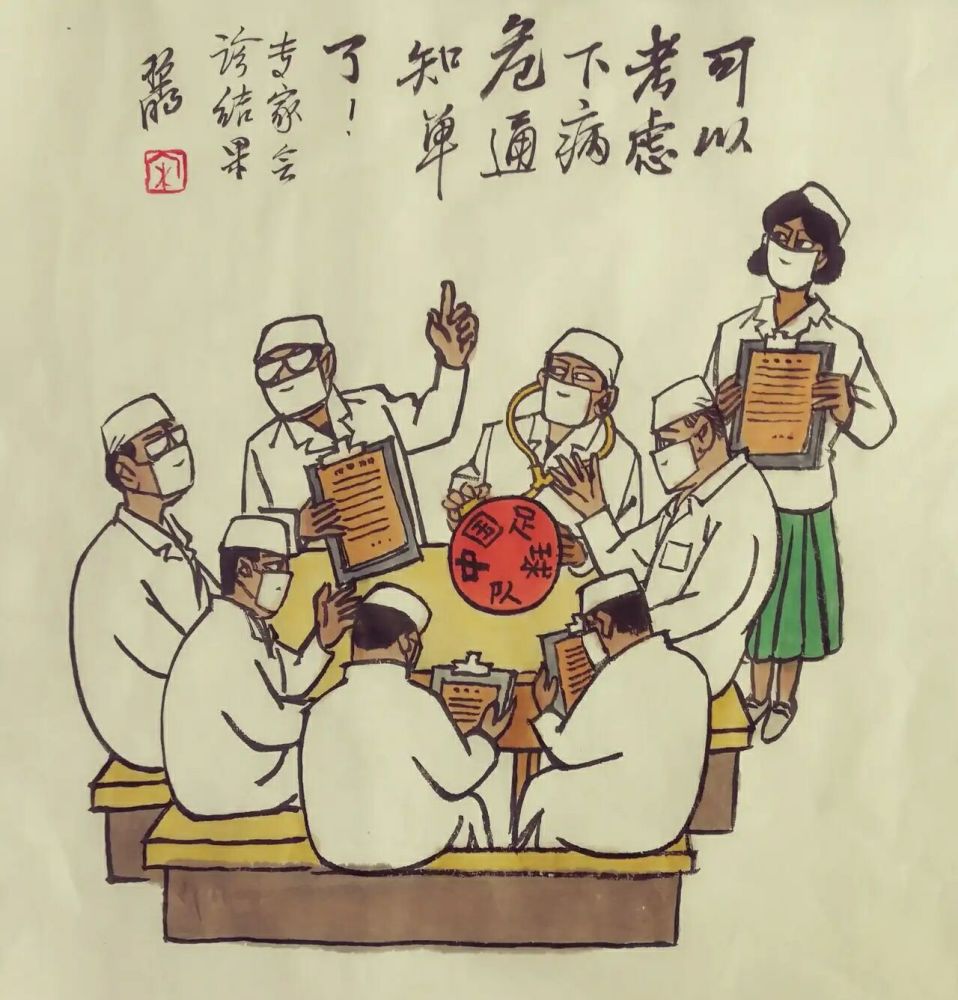 可以
考虑
下病
危通
知单
了！
专家会
诊结果
中国足球队